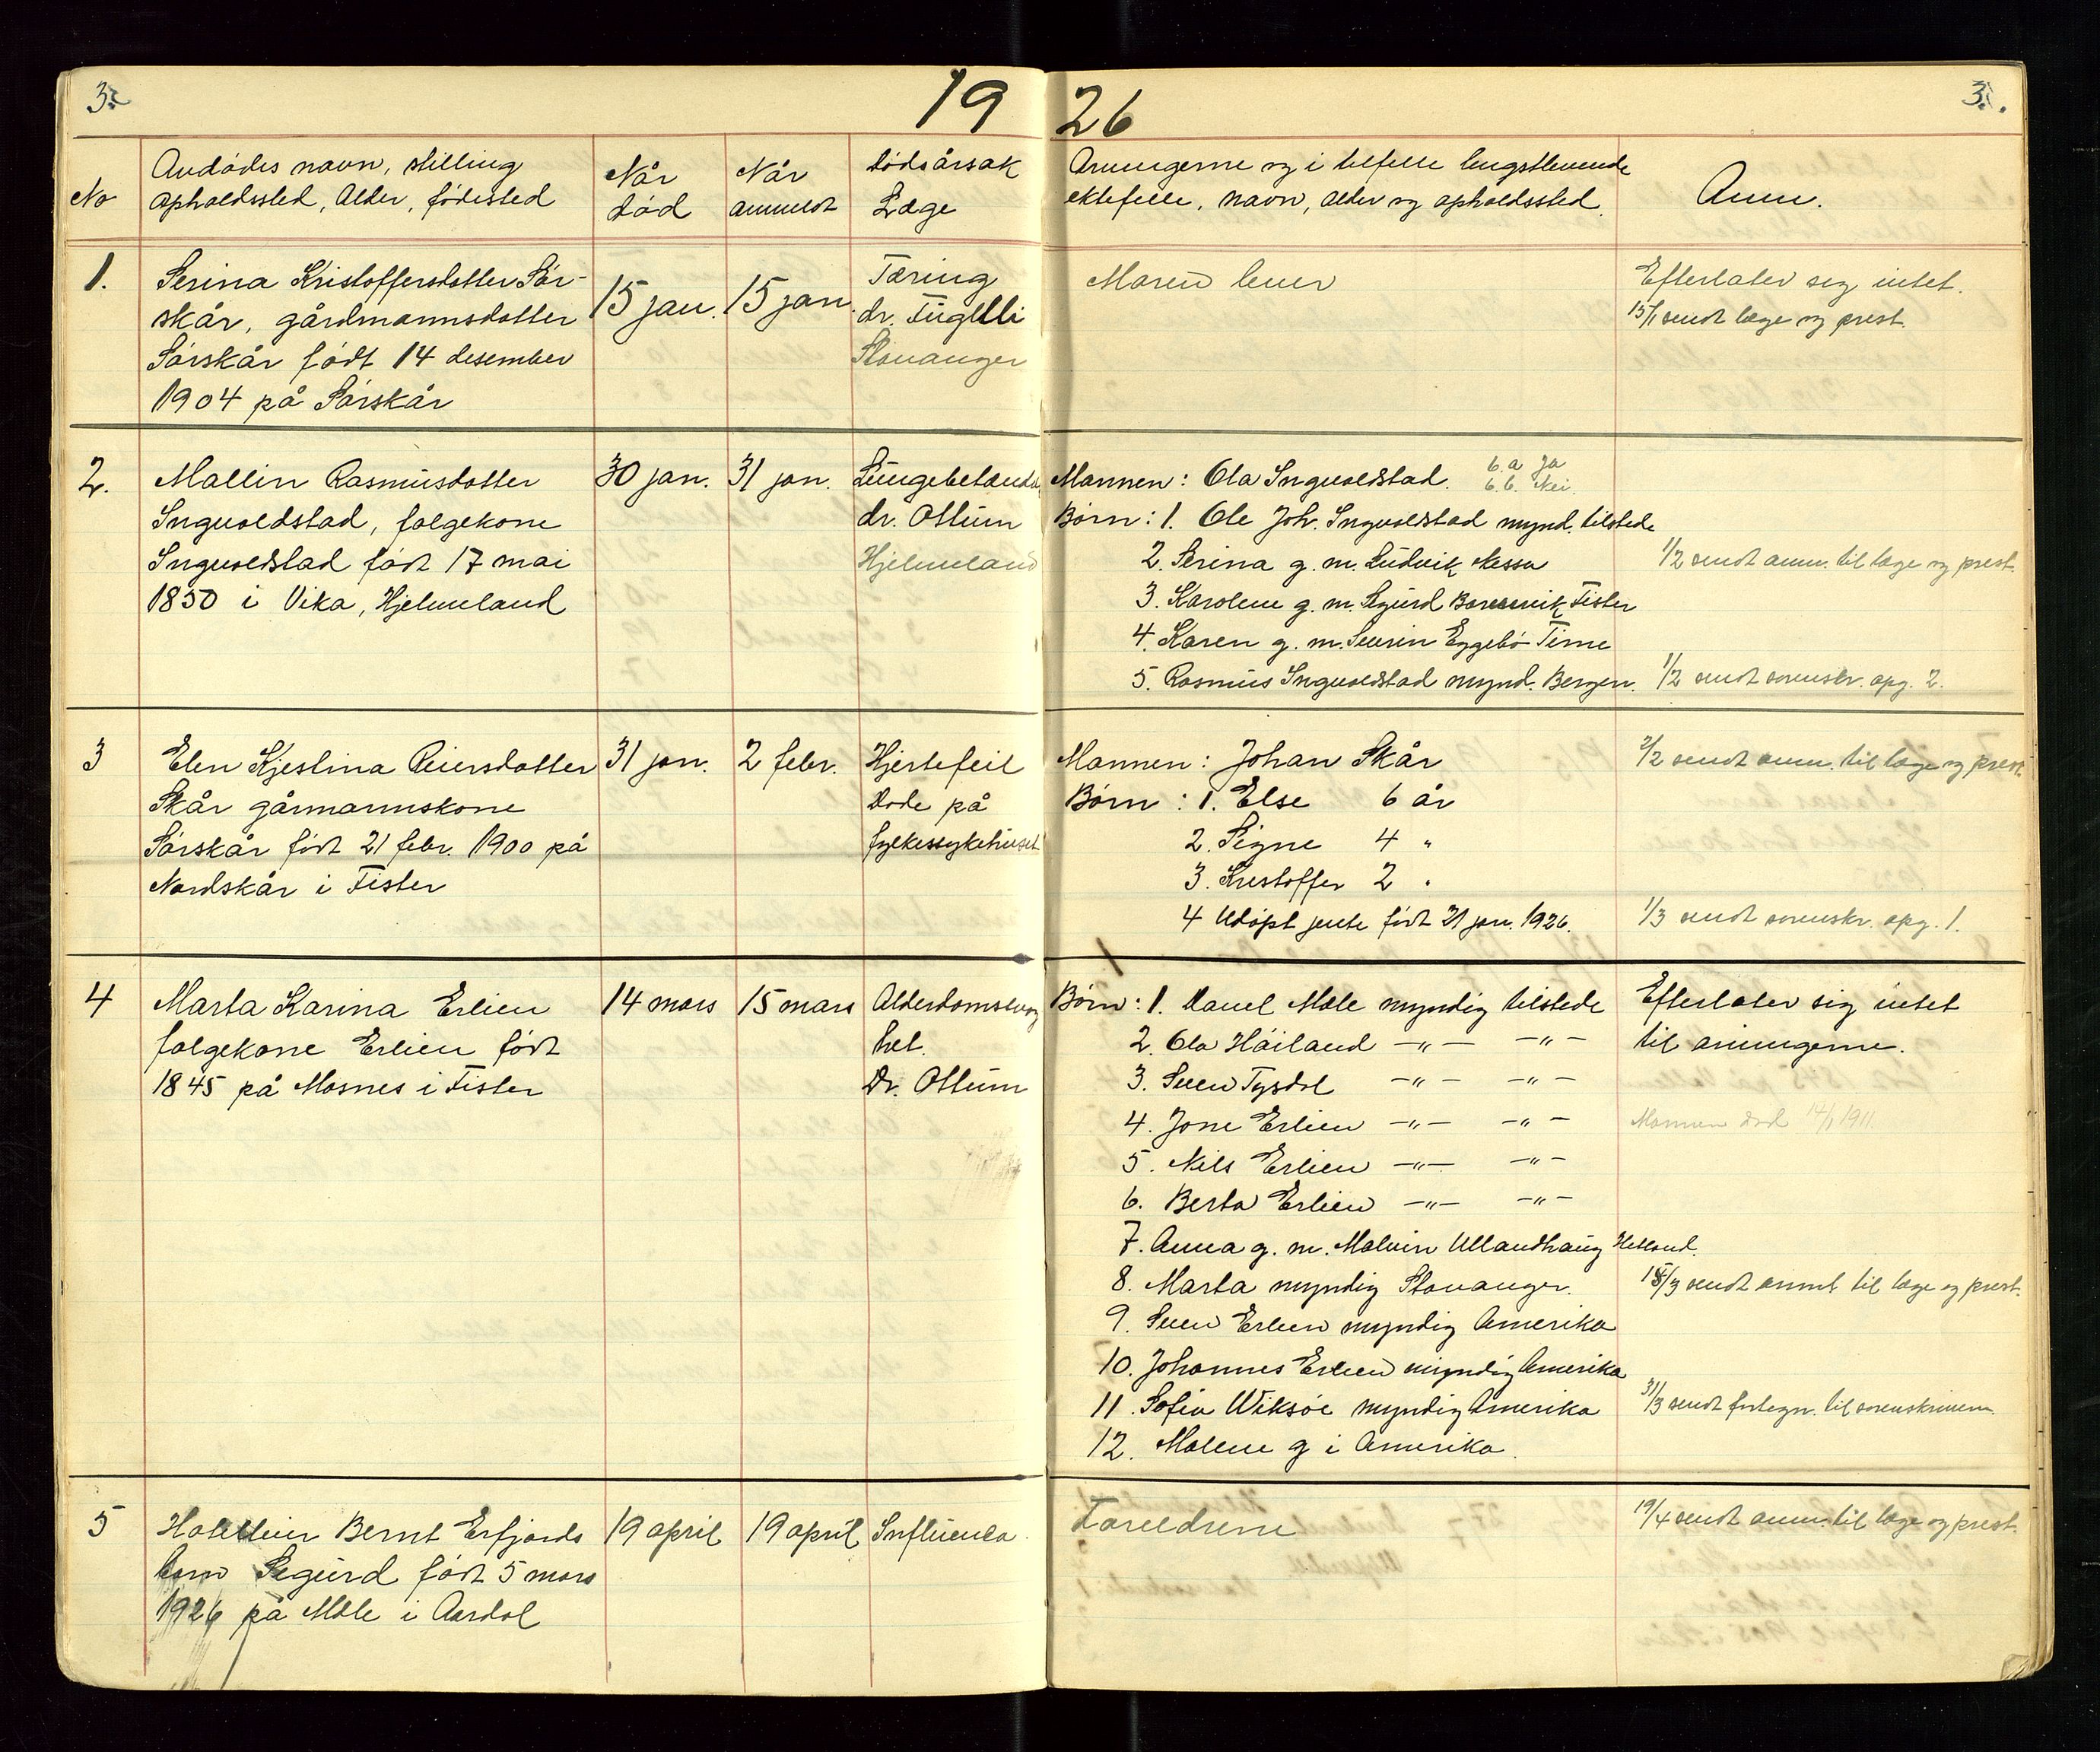 3.
19 26
3.
No
Avdødes navn, stilling
opholdssted, Alder, fødested
Når
død
Når
anmeldt
Dødsårsak
Læge
Arvingerne og i tilfelle lengstlevende
ektefelle, navn, alder og opholdssted.
Anm.
1.
Serina Kristoffersdatter Sør-
skår, gårdmannsdatter
Sørskår født 14 desember
1904 på Sørskår
15 jan.
15 jan.
Tæring
dr. Fugelli
Stavanger
Maren lever
Efterlater seg intet.
15/1 sendt læge og prest.
2.
Mallin Rasmusdatter
Ingvoldstad, folgekone
Ingvoldstad født 17 mai
1850 i Vika, Hjelmeland
30 jan.
31 jan.
Lungebetænd
dr. Ottum
Hjelmeland
Mannen: Ola Ingvoldstad.
6.a Ja
6.b. Nei.
Børn: 1. Ole Joh. Ingvoldstad mynd. tilstede
2. Serina g. m. Ludvik Nessa
3. Karolene g. m. Sigurd Fister
4. Karen g. m. Sevrin Eggebø Time
5. Rasmus Ingvoldstad mynd. Bergen.
1/2 sendt anm. til læge og prest.
1/2 sendt sorenskr. opg. 2.
3
Elen Kjestina Reiersdatter
Skår gårmannskone
Sørskår født 21 febr. 1900 på
Nordskår i Fister
31 jan.
2 febr.
Hjertefeil
Døde på
fylkessykehuset
Mannen: Johan Skår
Børn: 1. Else 6 år
2. Signe 4 "
3. Kristoffer 2 "
4 Udøpt jente født 21 jan. 1926.
2/2 sendt anm. til læge og prest.
1/3 sendt sorenskr. opg. 1.
4
Marta Karina Erlien
folgekone Erlien født
1845 på Mosnes i Fister
14 mars
15 mars
Alderdomssvag
het.
Dr. Ottum
Børn: 1. Danel Mæle myndig tilstede
2. Ola Høiland —"— —"—
3. Sven Tysdal —"— —"—
4. Jone Erlien —"— —"—
5. Nils Erlien —"— —"—
6. Berta Erlien —"— —"—
7. Anna g. m. Malvin Ullandhaug Hetland.
8. Marta myndig Stavanger.
9. Sven Erlien myndig Amerika
10. Johannes Erlien myndig Amerika
11. Sofia Wiksøe myndig Amerika
12. Malene g i Amerika.
Efterlater sig intet
til arvingerne.
Mannen død 14/1 1911.
15/3 sendt anmt til læge og prest.
31/3 sendt fortegn. til sorenskriveren.
5
Bernt Erfjords
barn Sigurd født 5 mars
1926 på Mæle i Aardal
19 april
19 april
Influenca.
Foreldrene
19/4 sendt anm. til læge og prest.